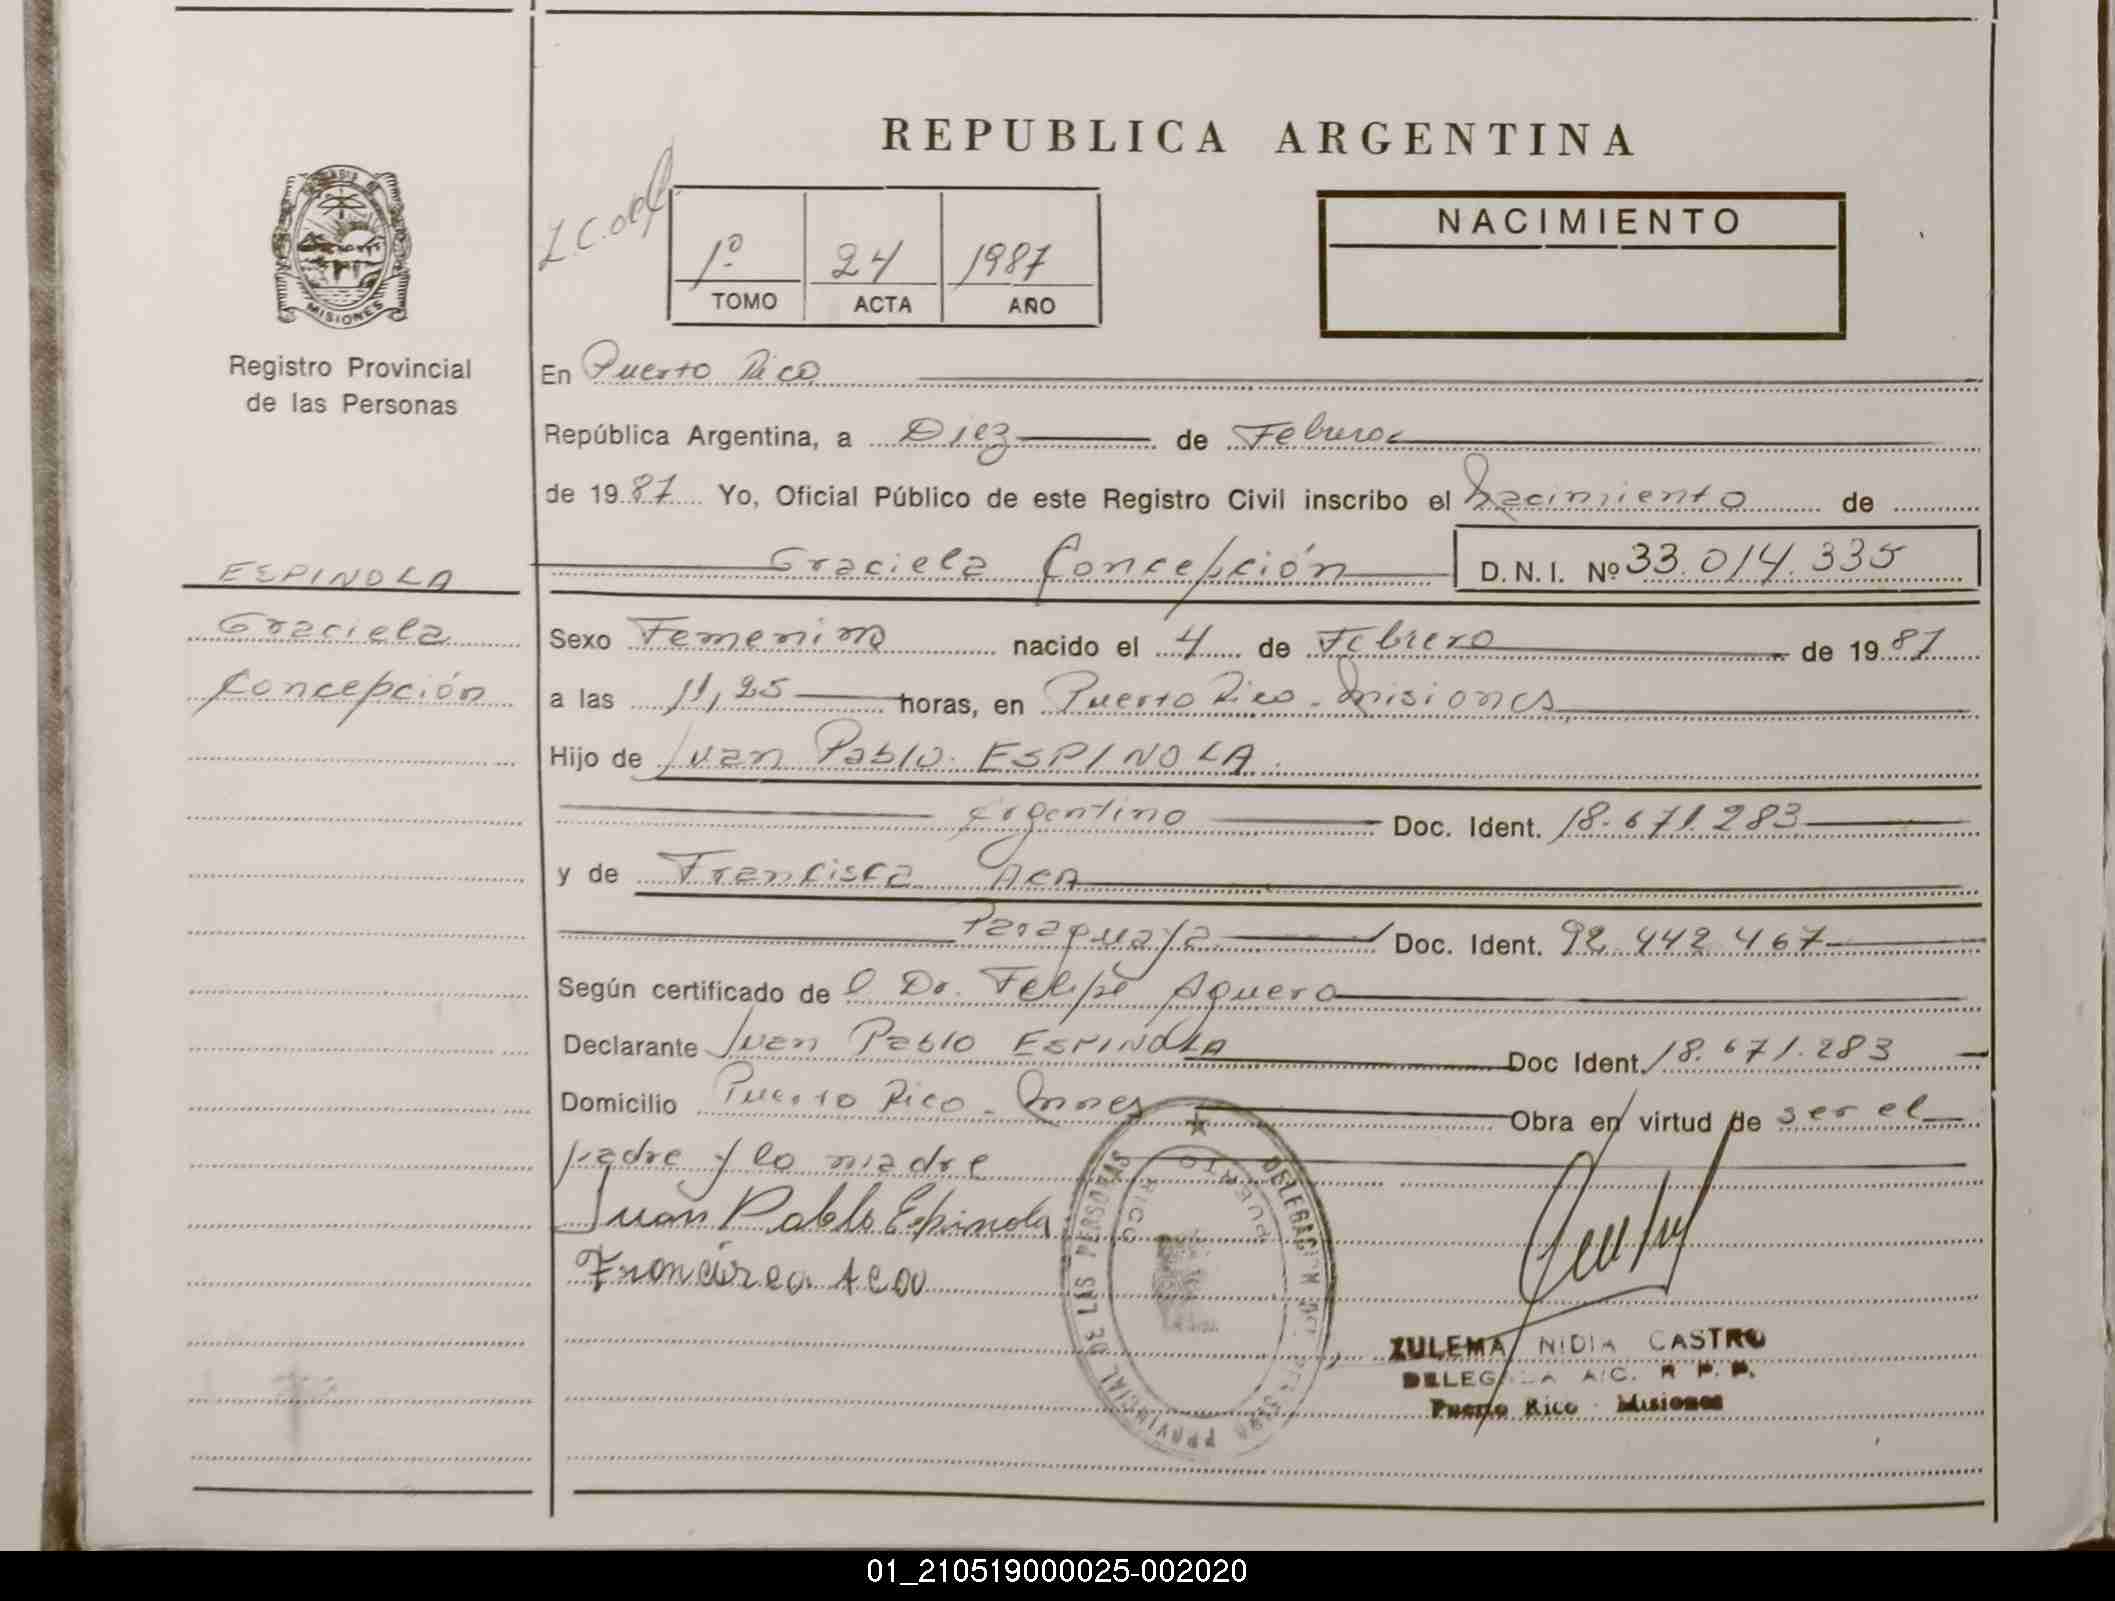 REPUBLICA ARGENTINA
MISIONES
Registro Provincial
de las Personas
1º 24 1987
TOMO ACTA AÑO
NACIMIENTO
En Puerto Rico
República Argentina, a Diez de Febrero
de 1987 Yo, Oficial Público de este Registro Civil inscribo el Nacimiento de
Graciela Concepción D.N.I. Nº 33.014.335
ESPINOLA
Graciela
Concepción
Sexo Femenino nacido el 4 de Febrero de 1987
a las 11,25 horas, en Puerto Rico - Misiones
Hijo de Juan Pablo ESPINOLA
Argentino Doc. Ident. 18.671.283
y de Francisca ACA
Paraguaya Doc. Ident. 92.442.467
Según certificado de l Dr. Felipe Aguero
Declarante Juan Pablo ESPINOLA Doc Ident. 18.671.283
Domicilio Puerto Rico - Mnes Obra en virtud de ser el
padre y la madre
Juan Pablo Espinola
Francisca Aca
DELEGACION
PROVINCIAL DE LAS PERSONAS
PUERTO RICO
ZULEMA NIDIA CASTRO
DELEGADA A/C. R. P. P.
Puerto Rico - Misiones
01_210519000025-002020